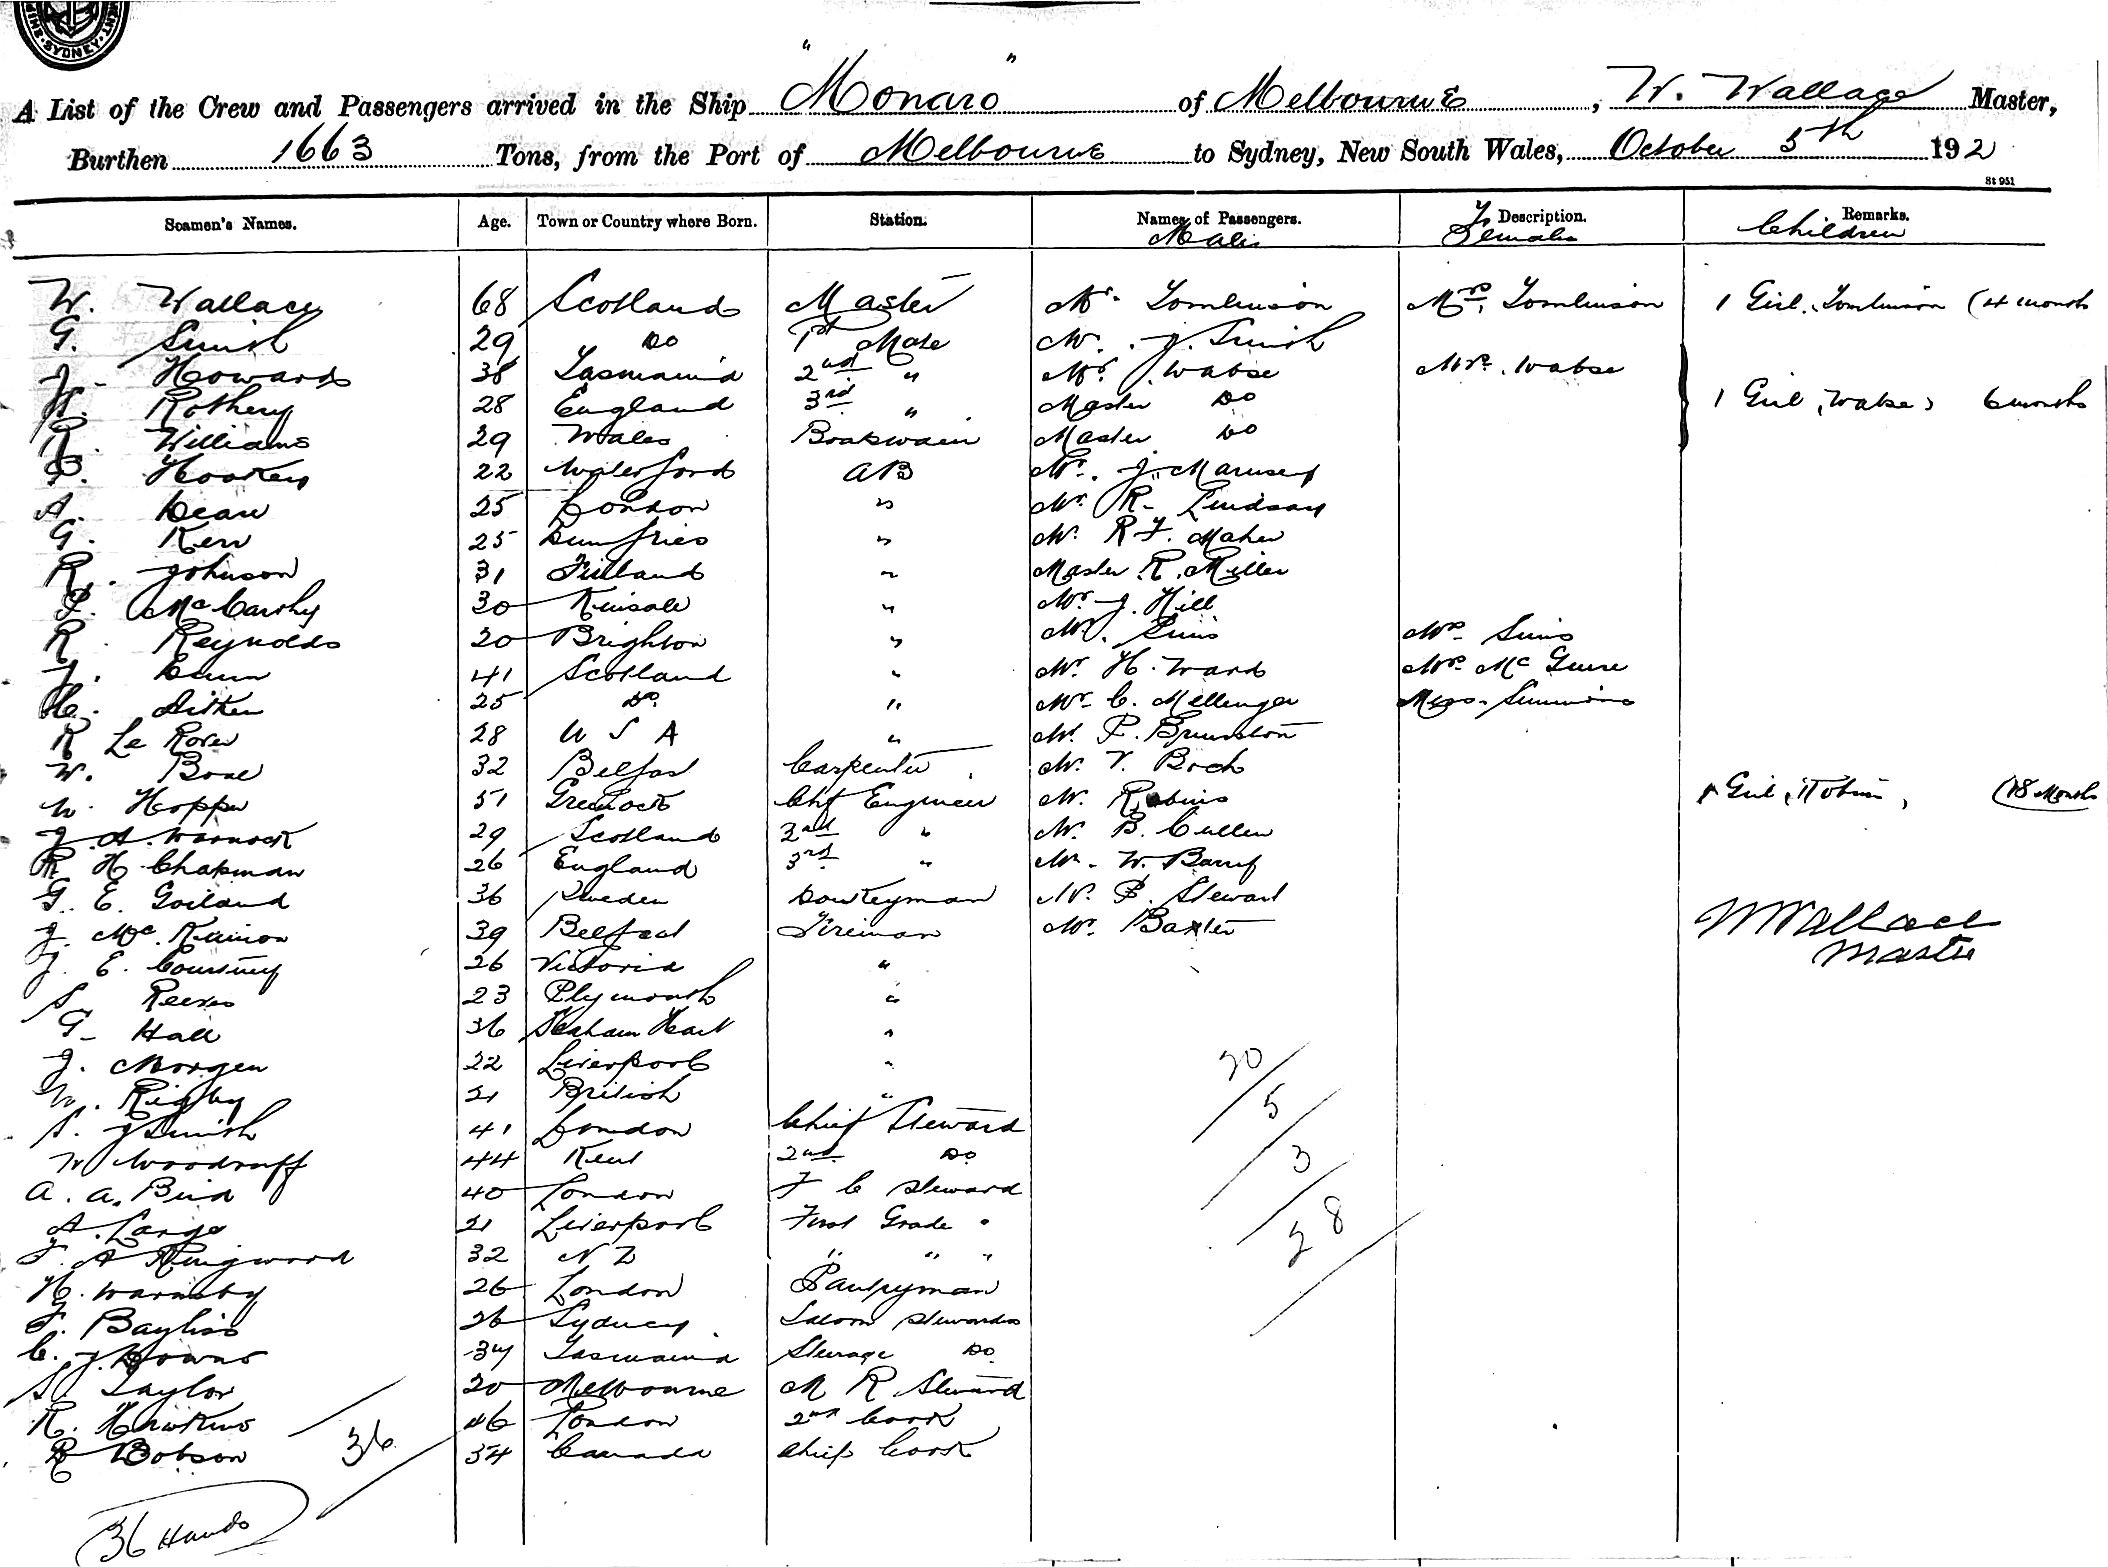 SYDNEY
A List of the Crew and Passengers arrived in the Ship "Monaro" of Melbourne, W. Wallace Master,
Burthen 1663 Tons, from the Port of Melbourne to Sydney, New South Wales, October 5th 192
St 951
Seamen's Names. Age. Town or Country where Born. Station. Names of Passengers. Description. Remarks.
Males Females Children
W. Wallace 68 Scotland Master Mr. Tomlinson Mrs. Tomlinson 1 Girl. Tomlinson (4 months
G. Smith 29 Do 1st Mate Mr. J. Smith
J. Howard 38 Tasmania 2nd " Mr. Wabse Mrs. Wabse
H. Rothery 28 England 3rd " Master Do 1 Girl, Wabse, 6 months
R. Williams 29 Wales Boatswain Master Do
P. Hookey 22 Waterford AB Mr. J.
A. Dean 25 London " Mr. R. Lindsay
G. Kerr 25 Dumfries " Mr. R F. Maher
R. Johnson 31 Finland " Master R. Miller
P. McCarthy 30 Kinsale " Mr J. Hill
R. Reynolds 20 Brighton " Mr. Sims Mrs. Sims
J. Dunn 41 Scotland " Mr H. Ward Mrs. McGuire
H. Aitken 25 Do. " Mr. C. Mellenger Miss. Simmins
R Le Rover 28 U S A " Mr. P. Brunston
W. Boal 32 Belfast Carpenter Mr. V. Boch
W. Hopper 51 Greenock Chf Engineer Mr. Robins 1 Girl, Robins, (18 Months
J. A. Warnock 29 Scotland 2nd " Mr. B. Cullen
R H. Chapman 26 England 3rd " Mr. W. Barry
G. E. Goiland 36 Sweden Donkeyman Mr. P. Stewart
J. McKinnon 39 Belfast Fireman Mr. Baxter
W Wallace
Master
J. E. Courtney 26 Victoria "
S. Reeves 23 Plymouth "
G. Hall 36 Seaham Harb "
J. Morgen 22 Liverpool "
W. Rigby 21 British "
S. J Smith 41 London Chief Steward
W Woodruff 44 Kent 2nd Do
A. A. Bird 40 London F C Steward
A. Large 21 Liverpool First Grade "
F. A Ringwood 32 N Z " " "
H. Warmsby 26 London Pantryman
F. Bayliss 26 Sydney Saloon Stewardess
C. J. Downs 34 Tasmania Steerage Do
S. Taylor 20 Melbourne M R Steward
R. Hawkins 46 London 2nd Cook
R Dobson 34 Canada Chief Cook
20
5
3
28
36
36 Hands